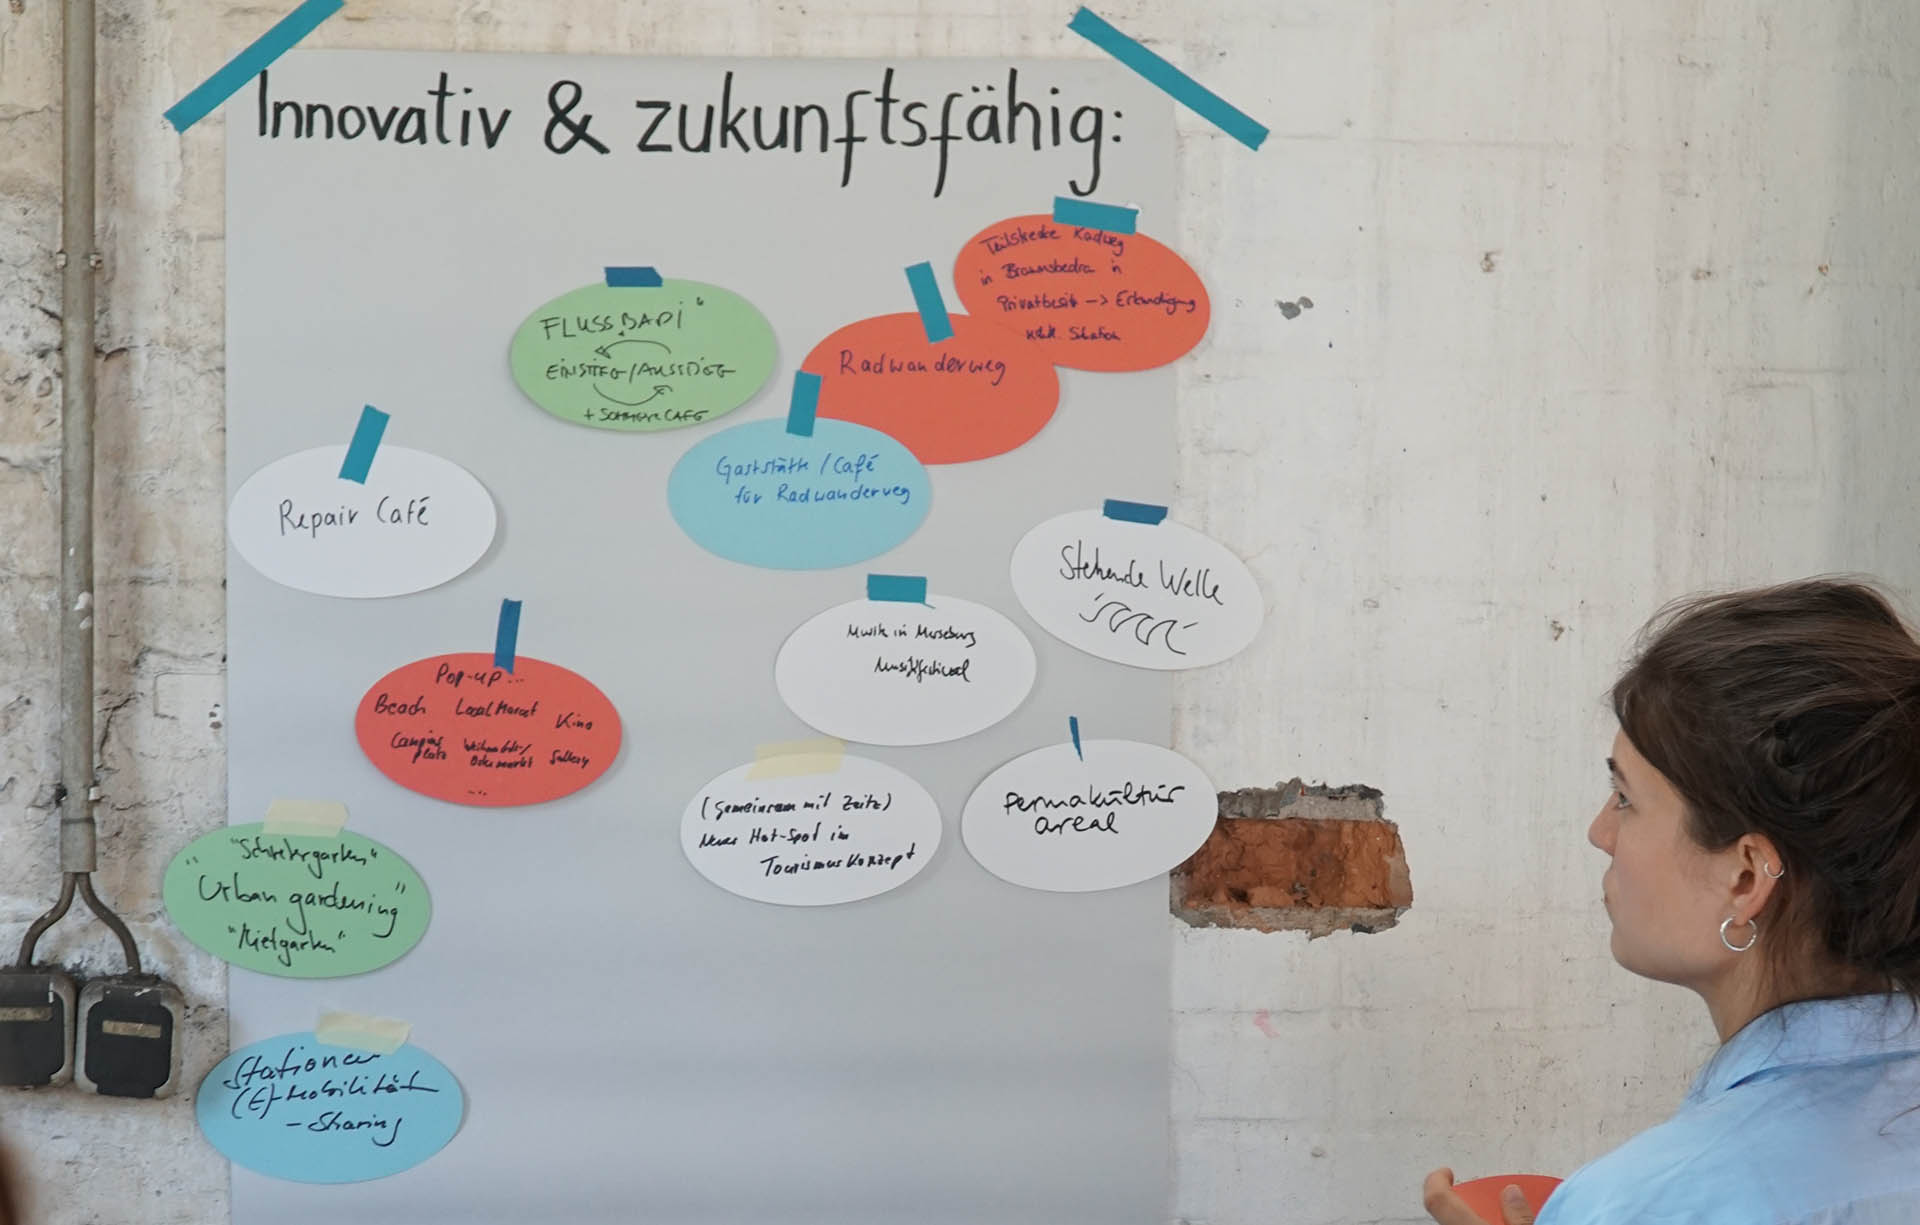 Innovativ & zukunftsfähig:
Teilstrecke Radweg
in Braunsbedra in
Privatbesitz -> Erkundigung
Radwanderweg
"FLUSSBADI"
EINSTIEG/AUSSTIEG
+ SOMMERCAFE
Gaststätte / Café
für Radwanderweg
Repair Café
Stehende Welle
Musik in Merseburg
Musikfestival
Pop-up...
Beach Local Market Kino
Camping
platz Weihnachts/
Ostermarkt Gallery
...
(Gemeinsam mit Zeitz)
Neues Hot-Spot im
Tourismuskonzept
Permakultur
areal
"Schrebergarten"
"Urban gardening"
"Mietgarten"
Stationen
(E)-Mobilität
- Sharing